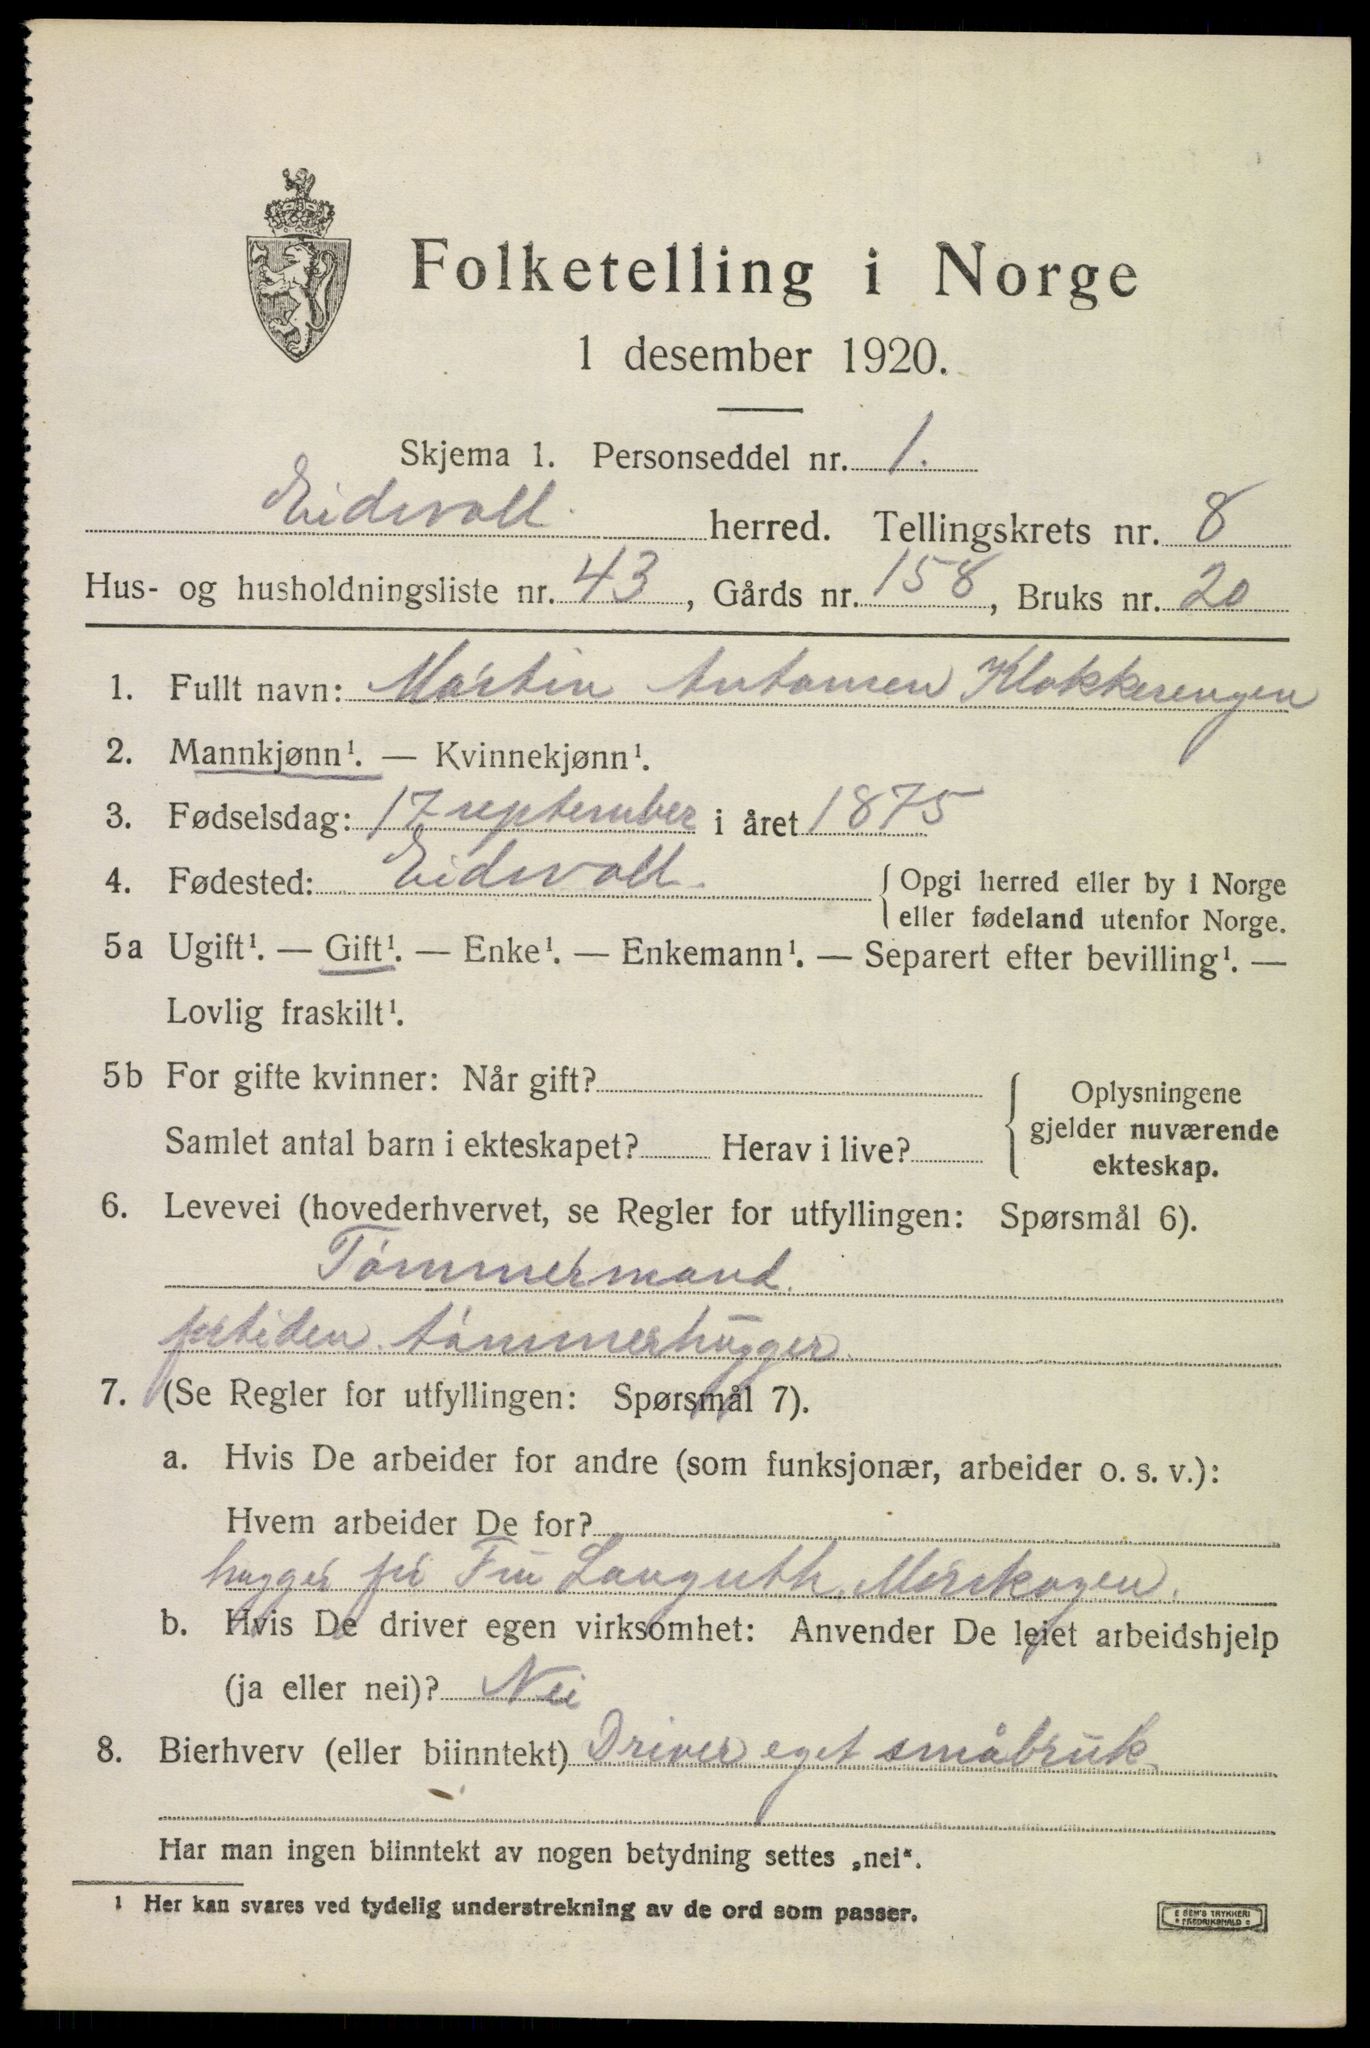 Folketelling i Norge
1 desember 1920.
Skjema 1. Personseddel nr. 1.
Eidsvoll herred. Tellingskrets nr. 8
Hus- og husholdningsliste nr. 43, Gårds nr. 158, Bruks nr. 20
1. Fullt navn: Martin Antonsen Klokkerengen
2. Mannkjønn¹. — Kvinnekjønn¹.
3. Fødselsdag: 17 september i året 1875
4. Fødested: Eidsvoll. { Opgi herred eller by i Norge
eller fødeland utenfor Norge.
5a Ugift¹. — Gift¹. — Enke¹. — Enkemann¹. — Separert efter bevilling¹. —
Lovlig fraskilt¹.
5b For gifte kvinner: Når gift?
Samlet antal barn i ekteskapet? Herav i live?
{ Oplysningene
gjelder nuværende
ekteskap.
6. Levevei (hovederhvervet, se Regler for utfyllingen: Spørsmål 6).
Tømmermand.
fortiden tømmerhugger.
7. (Se Regler for utfyllingen: Spørsmål 7).
a. Hvis De arbeider for andre (som funksjonær, arbeider o. s. v.):
Hvem arbeider De for?
hugger for Fru Languth, Morskogen.
b. Hvis De driver egen virksomhet: Anvender De leiet arbeidshjelp
(ja eller nei)? Nei
8. Bierhverv (eller biinntekt) Driver eget småbruk
Har man ingen biinntekt av nogen betydning settes „nei“.
1 Her kan svares ved tydelig understrekning av de ord som passer.
E SEM'S TRYKKERI
FREDRIKSHALD